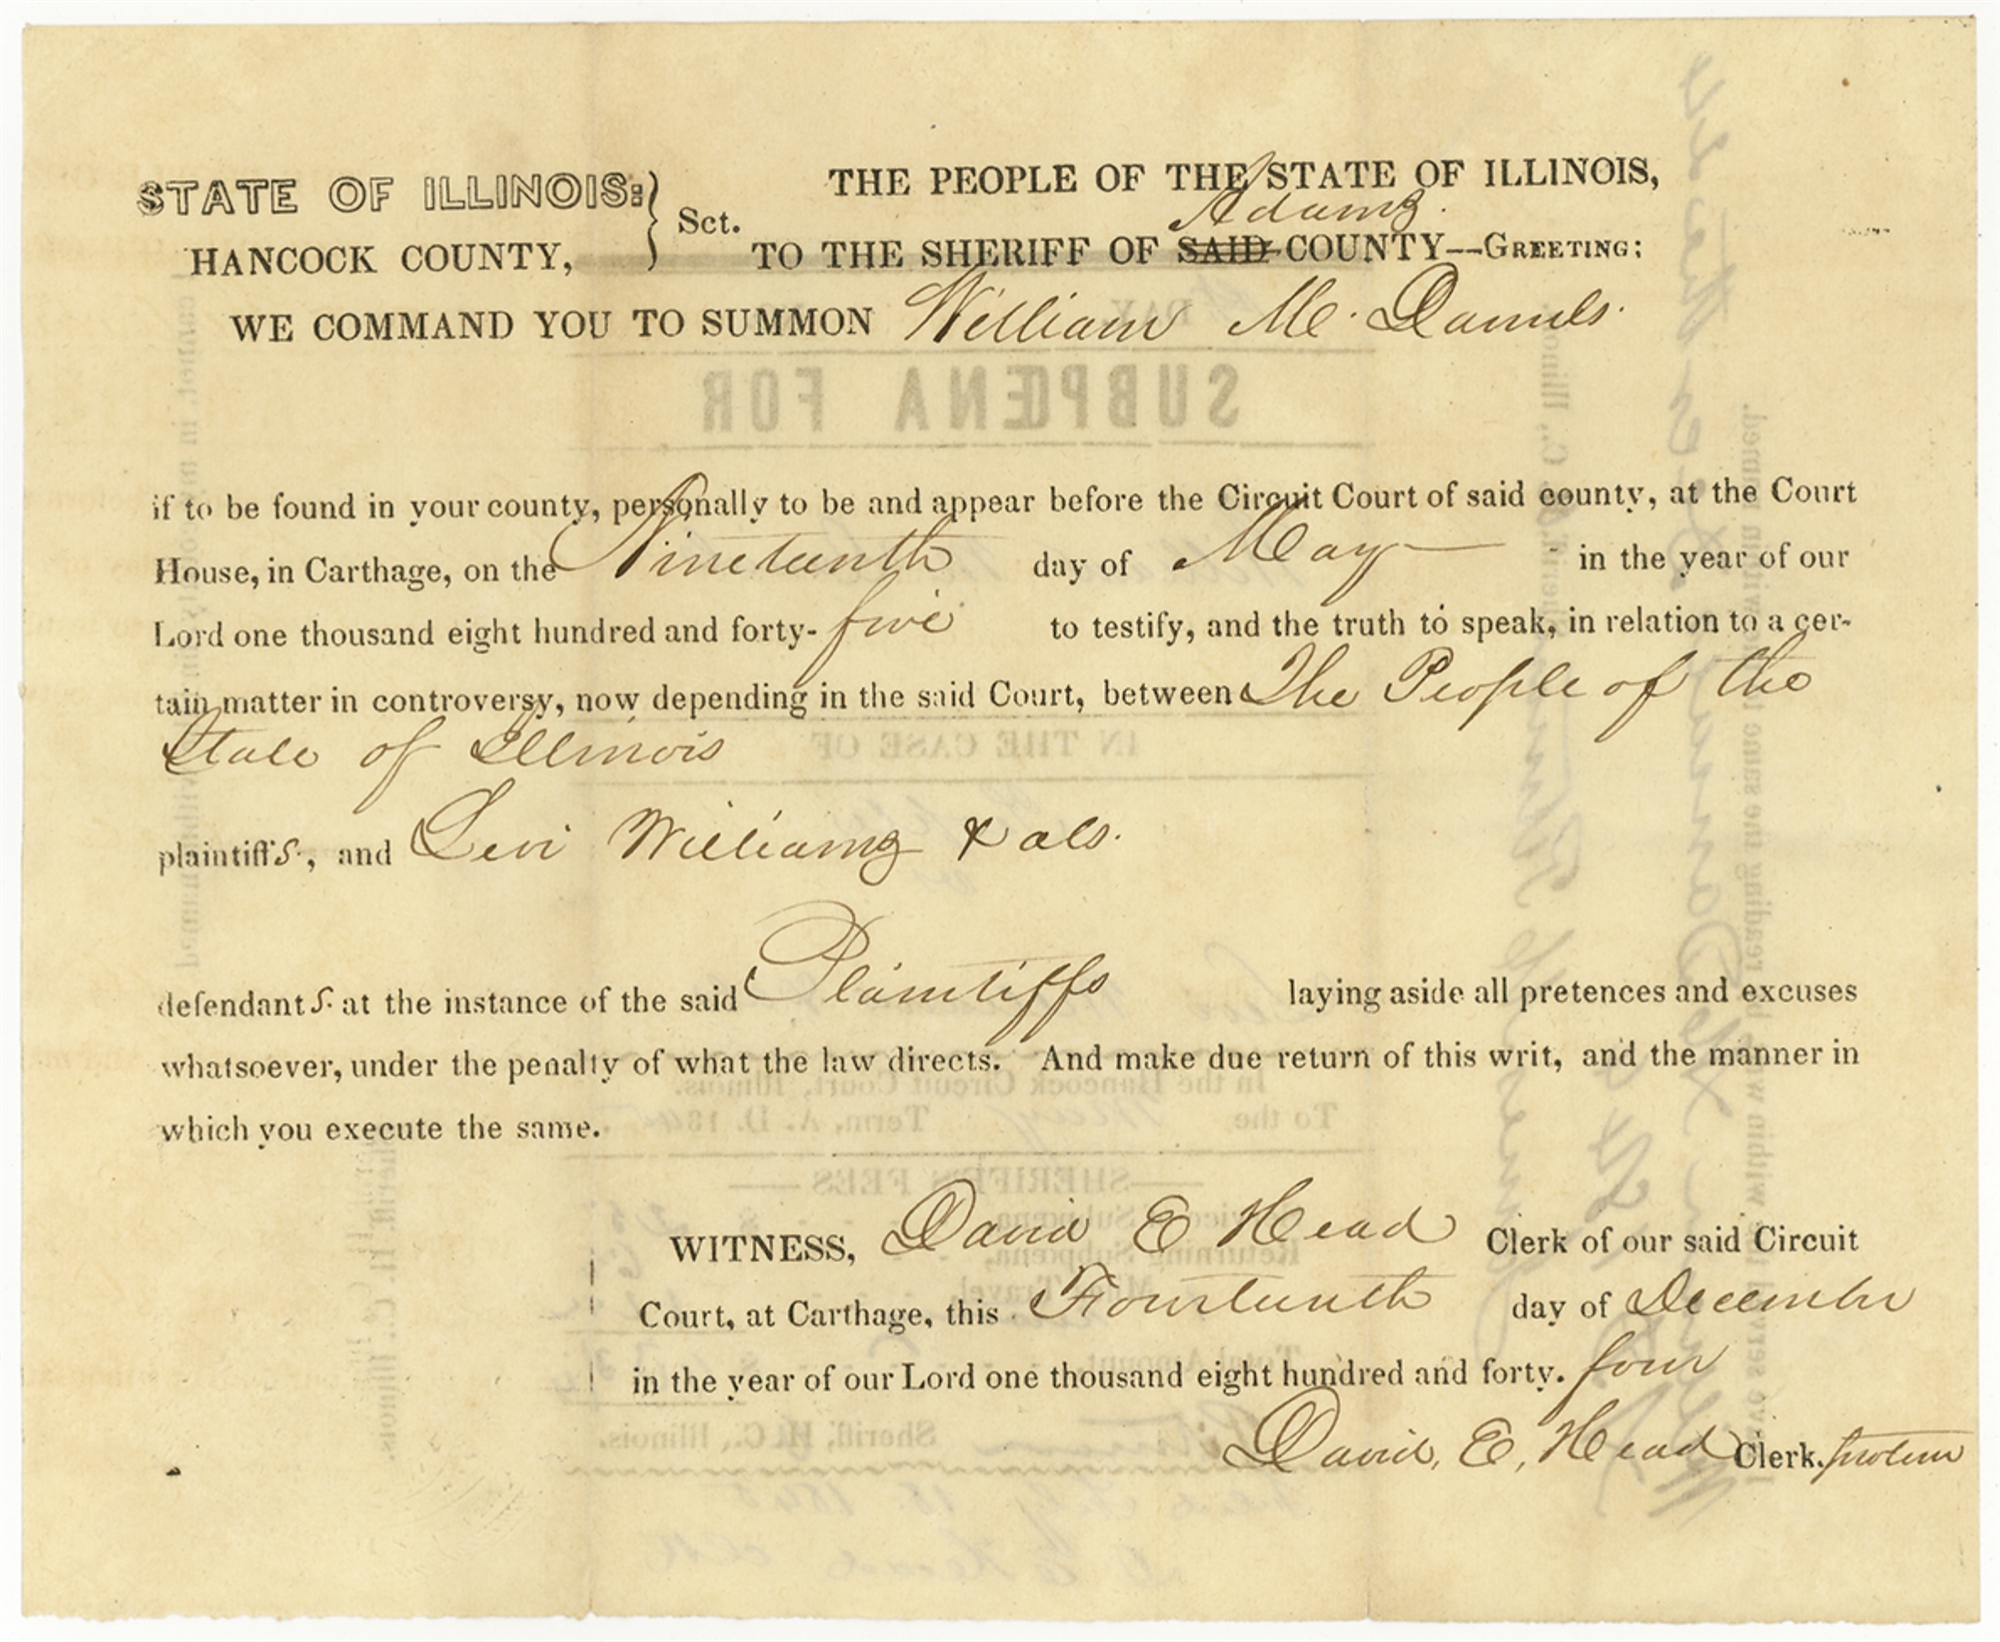 STATE OF ILLINOIS: } Sct. THE PEOPLE OF THE STATE OF ILLINOIS,
Adams
HANCOCK COUNTY, TO THE SHERIFF OF SAID COUNTY—GREETING:
WE COMMAND YOU TO SUMMON William M. Daniels.
SUBPŒNA FOR
if to be found in your county, personally to be and appear before the Circuit Court of said county, at the Court
House, in Carthage, on the Nineteenth day of May in the year of our
Lord one thousand eight hundred and forty-five to testify, and the truth to speak, in relation to a cer-
tain matter in controversy, now depending in the said Court, between The People of the
State of Illinois
IN THE CASE OF
plaintiffs, and Levi Williams & als.
defendants. at the instance of the said Plaintiffs laying aside all pretences and excuses
whatsoever, under the penalty of what the law directs. And make due return of this writ, and the manner in
In the Hancock Circuit Court, Illinois.
To the May Term, A. D. 184
which you execute the same.
SHERIFF'S FEES
WITNESS, David E Head Clerk of our said Circuit
Returning Subpœna,
Court, at Carthage, this Fourteenth day of December
in the year of our Lord one thousand eight hundred and forty. four
David, E, Head Clerk. protem
Sheriff, H. C., Illinois.